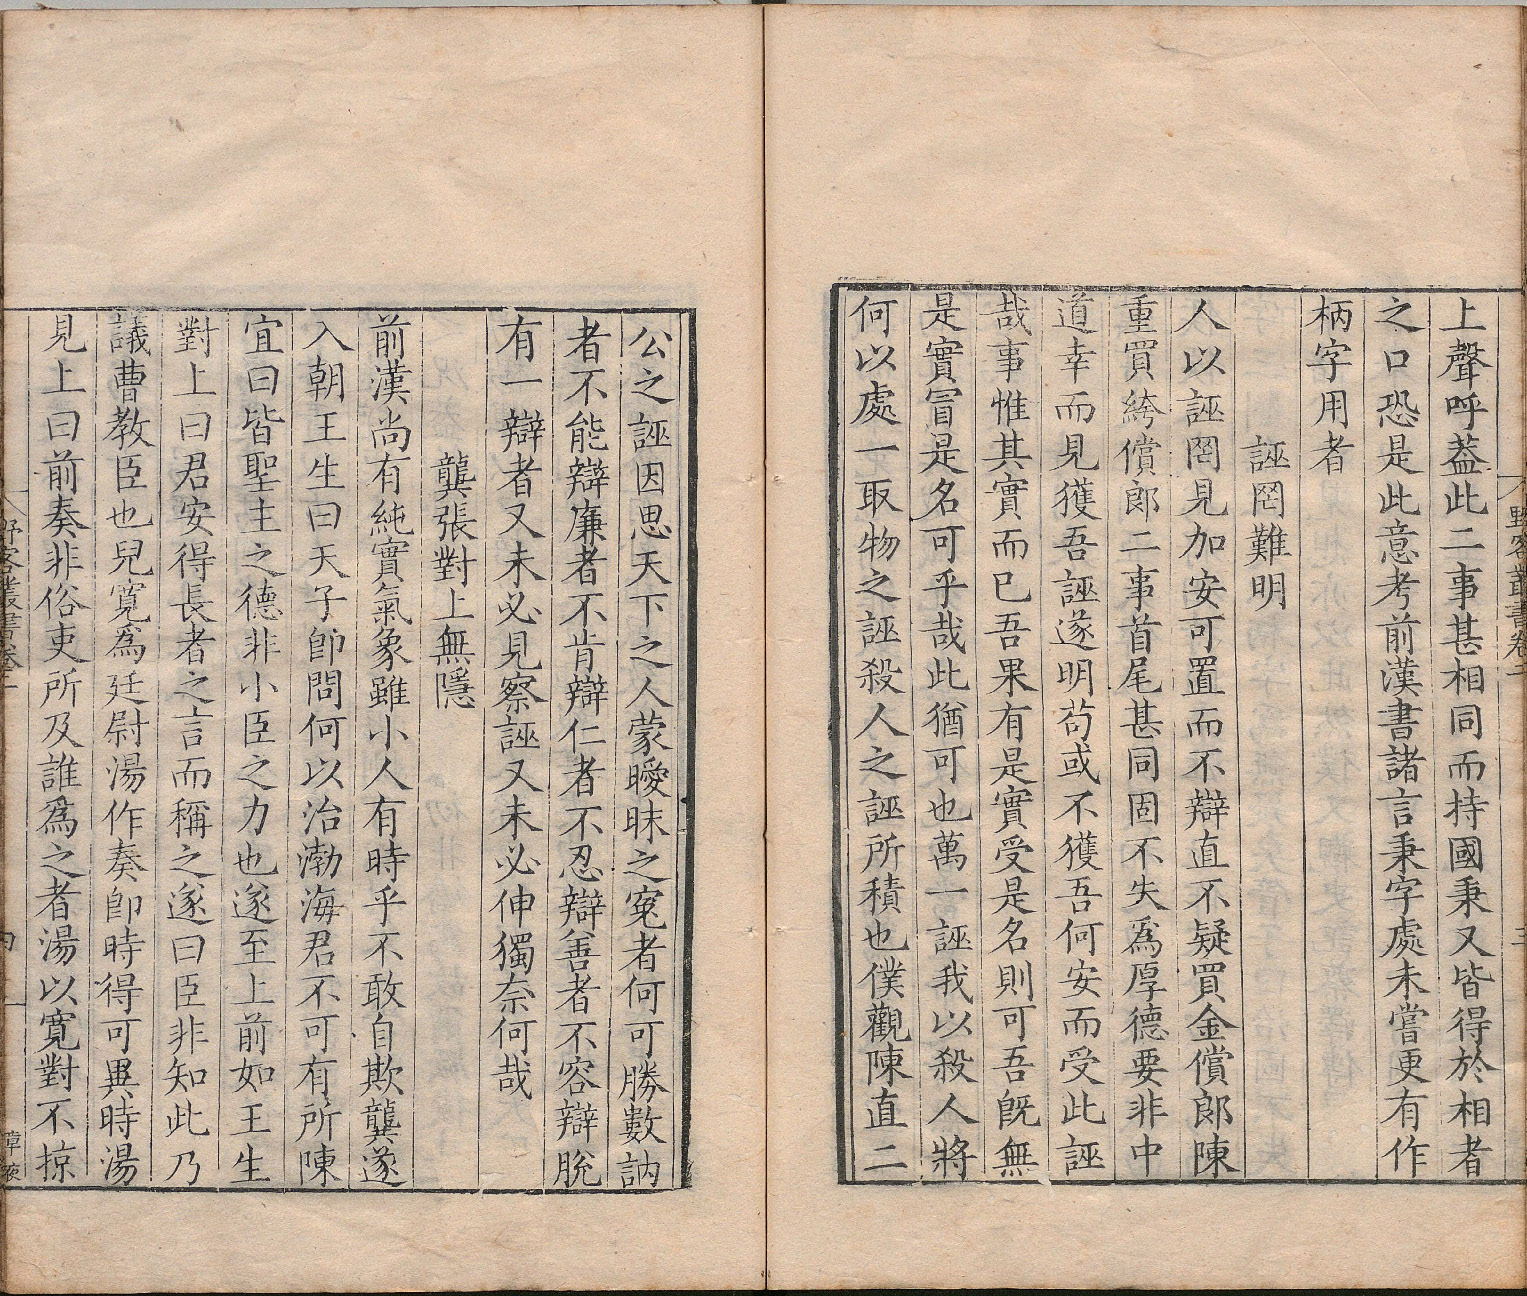 上聲呼蓋此二事甚相同而持國秉又皆得於相者
之口恐是此意考前漢書諸言秉字處未嘗更有作
柄字用者
誣罔難明
人以誣罔見加安可置而不辯直不疑買金償郎陳
重買絝償郎二事首尾甚同固不失爲厚德要非中
道幸而見獲吾誣遂明苟或不獲吾何安而受此誣
哉事惟其實而已吾果有是實受是名則可吾旣無
是實冐是名可乎哉此猶可也萬一誣我以殺人將
何以處一取物之誣殺人之誣所積也僕觀陳直二
公之誣因思天下之人蒙曖昧之寃者何可勝數訥
者不能辯廉者不肯辯仁者不忍辯善者不容辯脫
有一辯者又未必見察誣又未必伸獨奈何哉
龔張對上無隱
前漢尚有純實氣象雖小人有時乎不敢自欺龔遂
入朝王生曰天子卽問何以治渤海君不可有所陳
宜曰皆聖主之德非小臣之力也遂至上前如王生
對上曰君安得長者之言而稱之遂曰臣非知此乃
議曹教臣也兒寬爲廷尉湯作奏卽時得可異時湯
見上曰前奏非俗吏所及誰爲之者湯以寬對不掠
野客叢書卷二
三
野客叢書卷二